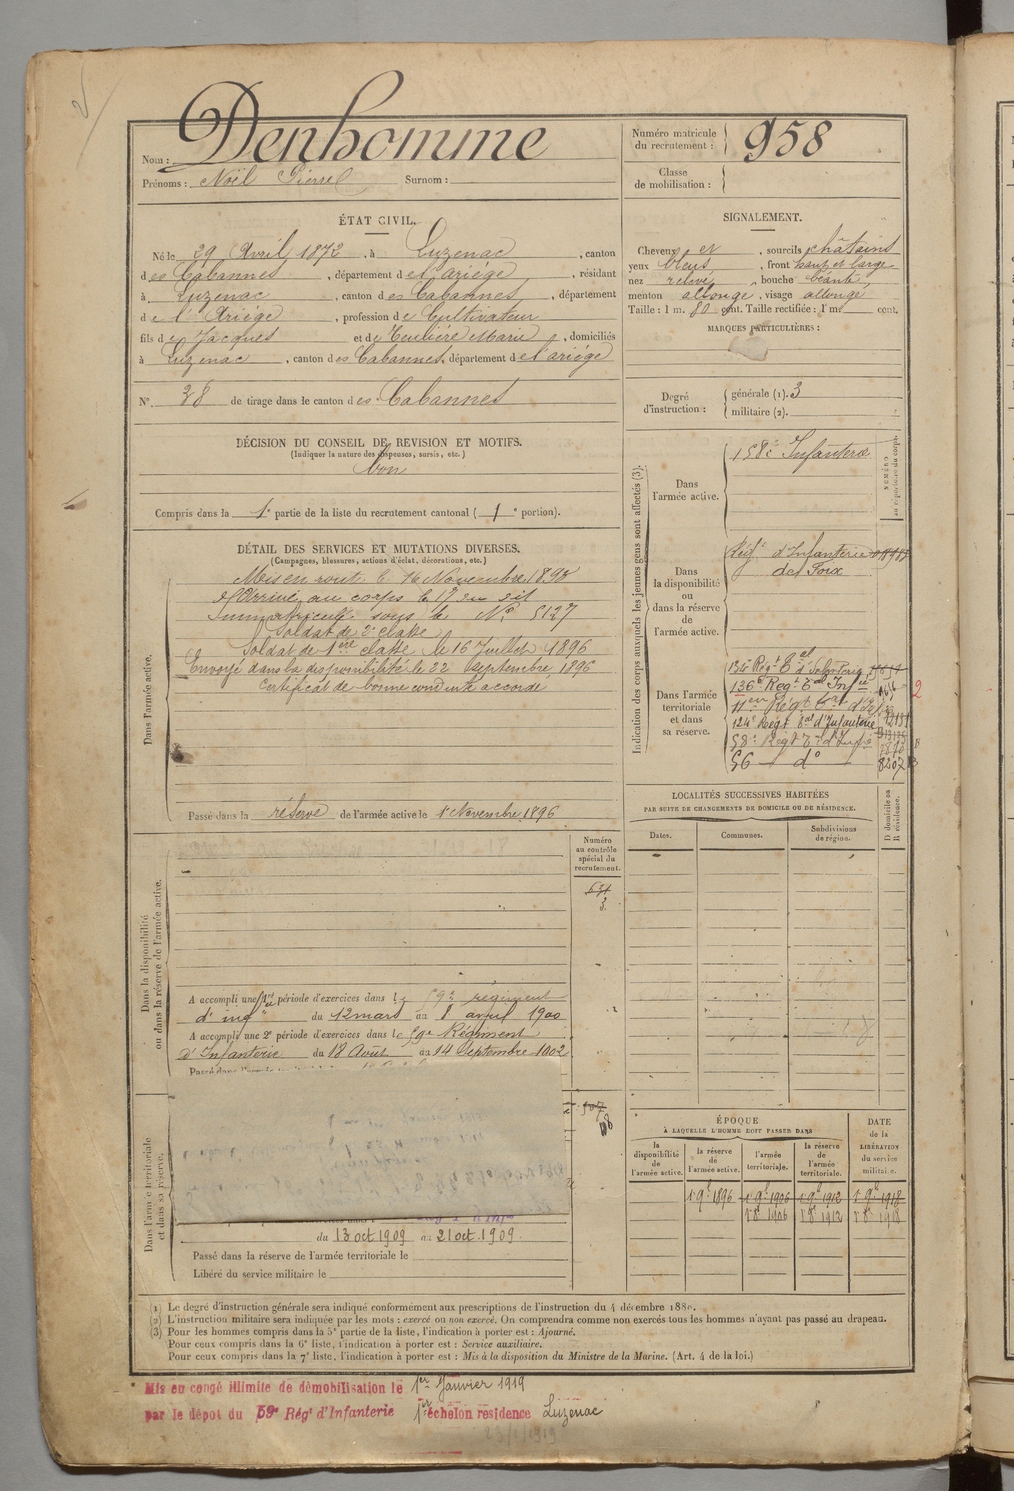 Nom : Denhomme
Prénoms : Noël Pierre Surnom :
Numéro matricule du recrutement : 958
Classe de mobilisation :
ÉTAT CIVIL.
Né le 29 Avril 1872, à Luzenac, canton
des Cabannes, département de l'ariége, résidant
à Luzenac, canton des Cabannes, département
de l'Ariége, profession de Cultivateur
fils de Jacques et de Teulière Marie, domiciliés
à Luzenac, canton des Cabannes, département de l'ariége
N° 38 de tirage dans le canton des Cabannes
SIGNALEMENT.
Cheveux et sourcils châtains
yeux bleus, front haut et large
nez relevé, bouche béante,
menton allongé, visage allongé
Taille : 1 m. 80 cent. Taille rectifiée : 1 m. cent.
MARQUES PARTICULIÈRES :
Degré d'instruction : générale (1). 3
militaire (2).
DÉCISION DU CONSEIL DE REVISION ET MOTIFS.
(Indiquer la nature des dispenses, sursis, etc.)
bon
Compris dans la 1e partie de la liste du recrutement cantonal ( 1e portion).
DÉTAIL DES SERVICES ET MUTATIONS DIVERSES.
(Campagnes, blessures, actions d'éclat, décorations, etc.)
Dans l'armée active.
Mis en route le 16 Novembre 1893
Arrivé au corps le 17 du dit
Immatriculé sous le N° 5127
Soldat de 2e classe
Soldat de 1ère classe le 16 Juillet 1896
Envoyé dans la disponibilité le 22 Septembre 1896
Certificat de bonne conduite accordé
Passé dans la réserve de l'armée active le 1 Novembre 1896
Indication des corps auxquels les jeunes gens sont affectés (3).
NUMÉRO au répertoire du corps.
Dans l'armée active.
158e Infanterie
Dans la disponibilité ou dans la réserve de l'armée active.
Régt d'Infanterie
de Foix
Dans l'armée territoriale et dans sa réserve.
134 Régt Tal d'Infanterie
136e Regt Tal Infie
2
11e Régt Tal d'Inf
124e Régt Tal d'Infanterie
58e Regt Tal d'Infie
56 — do — 8207
LOCALITÉS SUCCESSIVES HABITÉES
PAR SUITE DE CHANGEMENTS DE DOMICILE OU DE RÉSIDENCE.
Dates. Communes. Subdivisions de région. D domicile ou R résidence.
Numéro au contrôle spécial du recrutement.
Dans la disponibilité ou dans la réserve de l'armée active.
A accompli une 1re période d'exercices dans le 59e régiment
d'infie du 12 mars au 8 avril 1900
A accompli une 2e période d'exercices dans le 59e Régiment
d'Infanterie du 18 Août au 14 Septembre 1902
Dans l'armée territoriale et dans sa réserve.
du 13 oct 1909 au 21 oct. 1909.
Passé dans la réserve de l'armée territoriale le
Libéré du service militaire le
ÉPOQUE
À LAQUELLE L'HOMME DOIT PASSER DANS
la disponibilité de l'armée active. la réserve de l'armée active. l'armée territoriale. la réserve de l'armée territoriale.
DATE de la LIBÉRATION du service militaire.
1 9bre 1896 1 9bre 1906 1 9bre 1912 1 9bre 1918
1 8bre 1906 1 8bre 1912 1 8bre 1918
(1) Le degré d'instruction générale sera indiqué conformément aux prescriptions de l'instruction du 4 décembre 1889.
(2) L'instruction militaire sera indiquée par les mots : exercé ou non exercé. On comprendra comme non exercés tous les hommes n'ayant pas passé au drapeau.
(3) Pour les hommes compris dans la 5e partie de la liste, l'indication à porter est : Ajourné.
Pour ceux compris dans la 6e liste, l'indication à porter est : Service auxiliaire.
Pour ceux compris dans la 7e liste, l'indication à porter est : Mis à la disposition du Ministre de la Marine. (Art. 4 de la loi.)
Mis en congé illimité de démobilisation le 1er Janvier 1919
par le dépôt du 59e Régt d'Infanterie 1er échelon résidence Luzenac